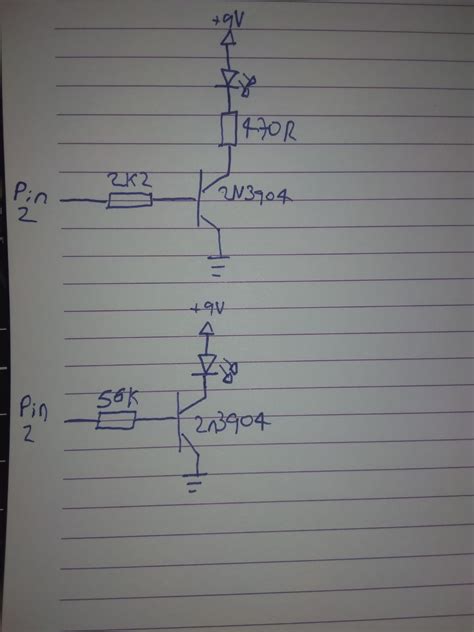 +9V
470R
2K2
Pin
2
2N3904
+9V
56K
Pin
2
2n3904